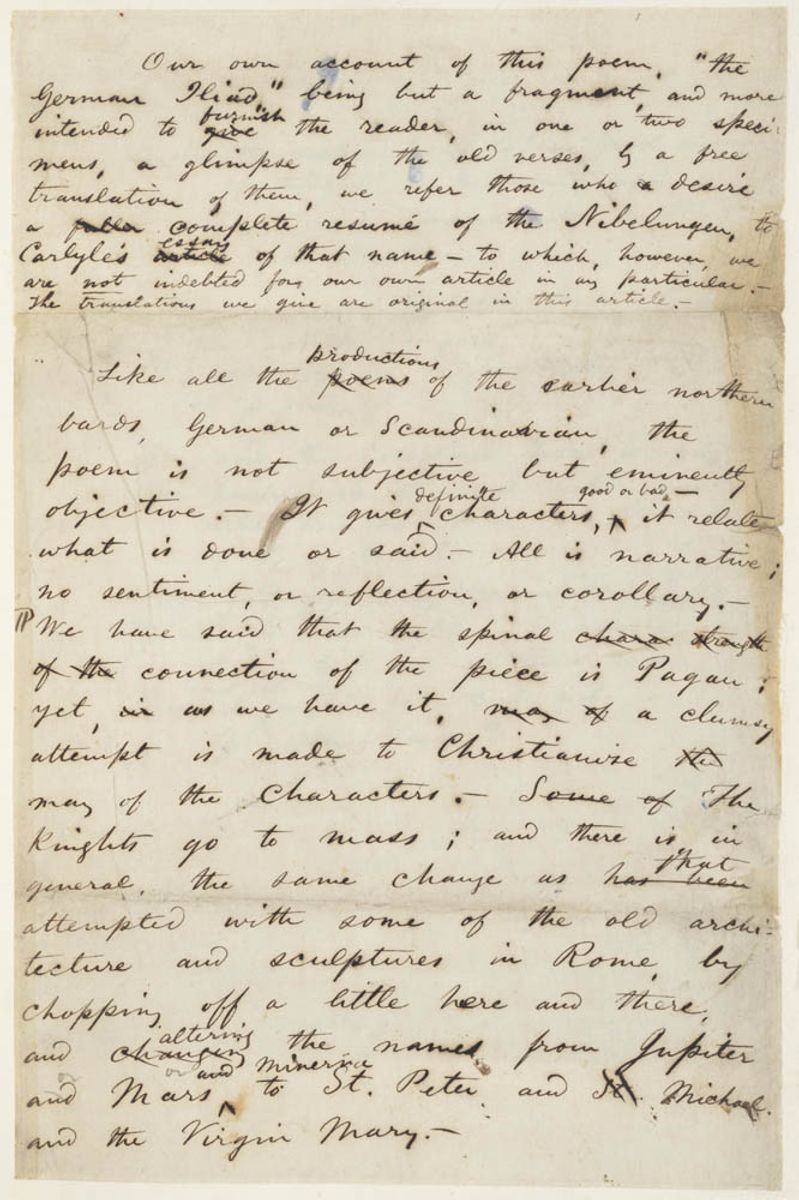 Our own account of this poem, "the
German Iliad" being but a fragment, and more
furnish
intended to give the reader, in one or two speci-
mens, a glimpse of the old verses, by a free
translation of them, we refer those who a desire
a fuller complete resumé of the Nibelungen, to
essay
Carlyle's article of that name — to which, however, we
are not indebted for our own article in any particular. —
The translations we give are original in this article. —
productions
Like all the poems of the earlier northern
bards, German or Scandinavian, the
poem is not subjective but eminently
definite good or bad, —
objective. — It gives ^ characters, ^ it relates
what is done or said. — All is narrative;
no sentiment, or reflection, or corollary. —
¶ We have said that the spinal chara strength
of the connection of the piece is Pagan;
yet, in as we have it, may of a clumsy
attempt is made to Christianise the
may of the Characters. — Some of The
Knights go to mass; and there is in
that
general, the same change as has been
attempted with some of the old archi-
tecture and sculptures in Rome, by
chopping off a little here and there,
altering
and changing the names from Jupiter
or and Minerva
and Mars ^ to St. Peter and St. Michael.
and the Virgin Mary. —